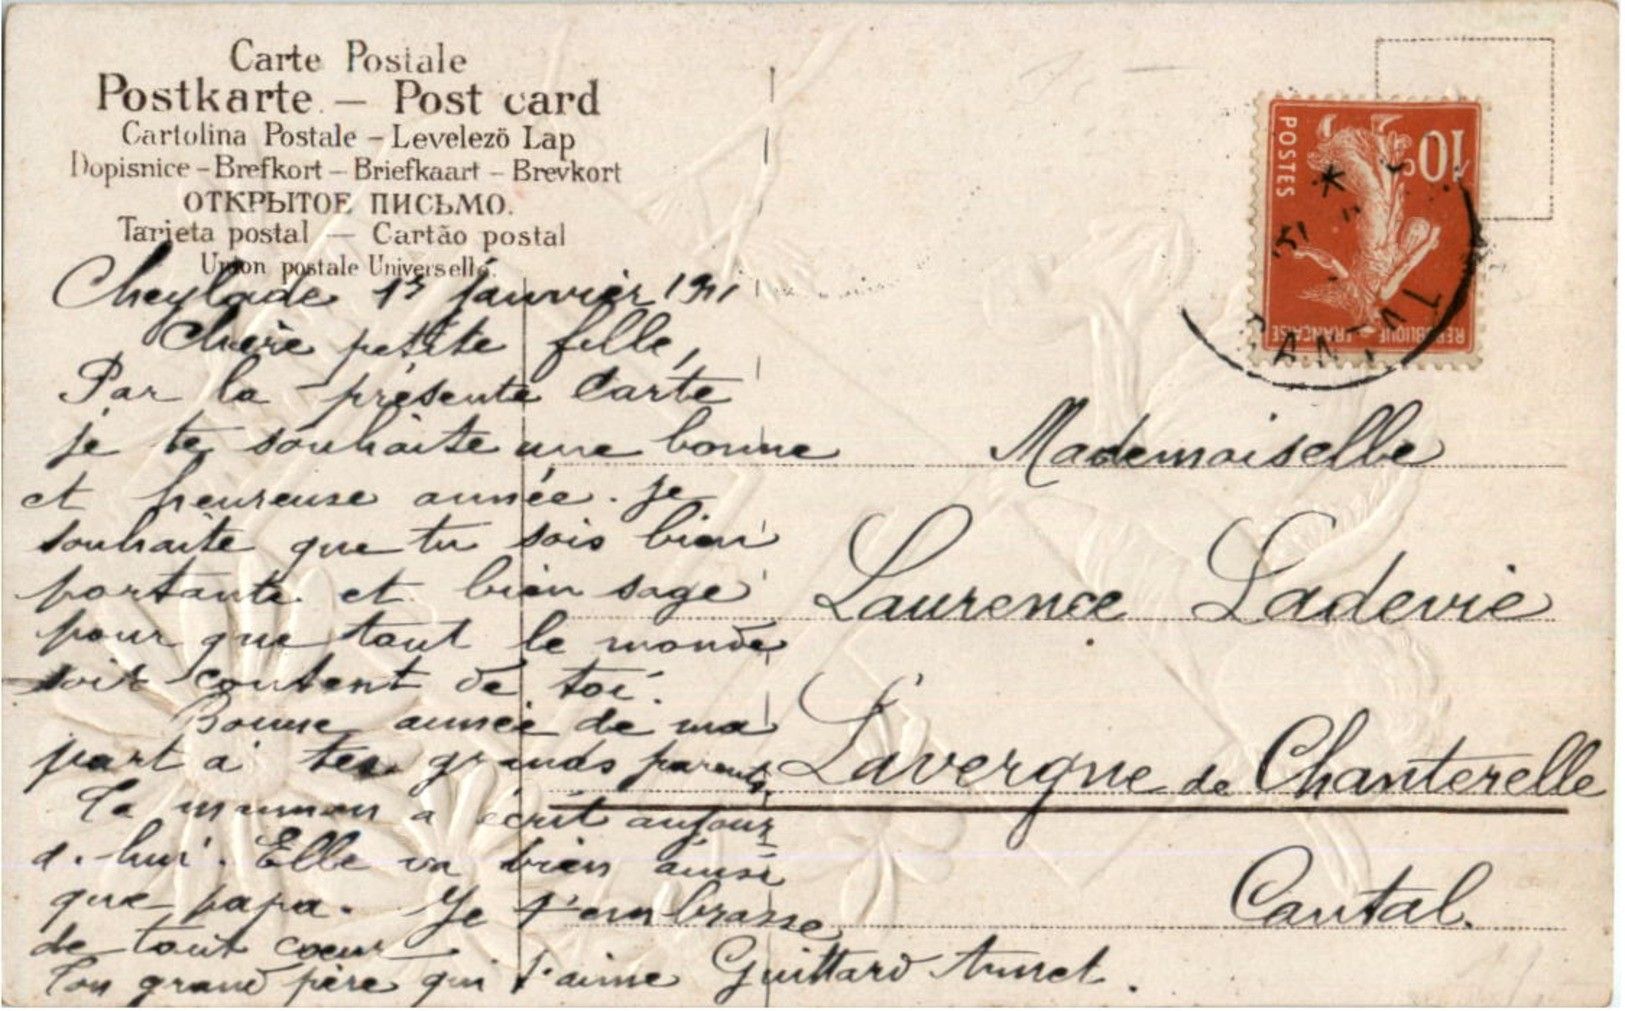 Carte Postale
Postkarte – Post card
Cartolina Postale – Levelezö Lap
Dopisnice – Brefkort – Briefkaart – Brevkort
ОТКРЫТОЕ ПИСЬМО.
Tarjeta postal — Cartão postal
Union postale Universelle.
Cheylade 1er janvier 1911
Chère petite fille,
Par la présente Carte
je te souhaite une bonne
et heureuse année. Je
souhaite que tu sois bien
portante et bien sage
pour que tout le monde
soit content de toi.
Bonne année de ma
part à tes grands parents.
Ta maman a écrit aujour
d'hui. Elle va bien ainsi
que papa. Je t'embrasse
de tout coeur
Ton grand père qui t'aime Guittard
10c
POSTES
REPUBLIQUE FRANÇAISE
CANTAL
Mademoiselle
Laurence Ladevie
Lavergne de Chanterelle
Cantal.